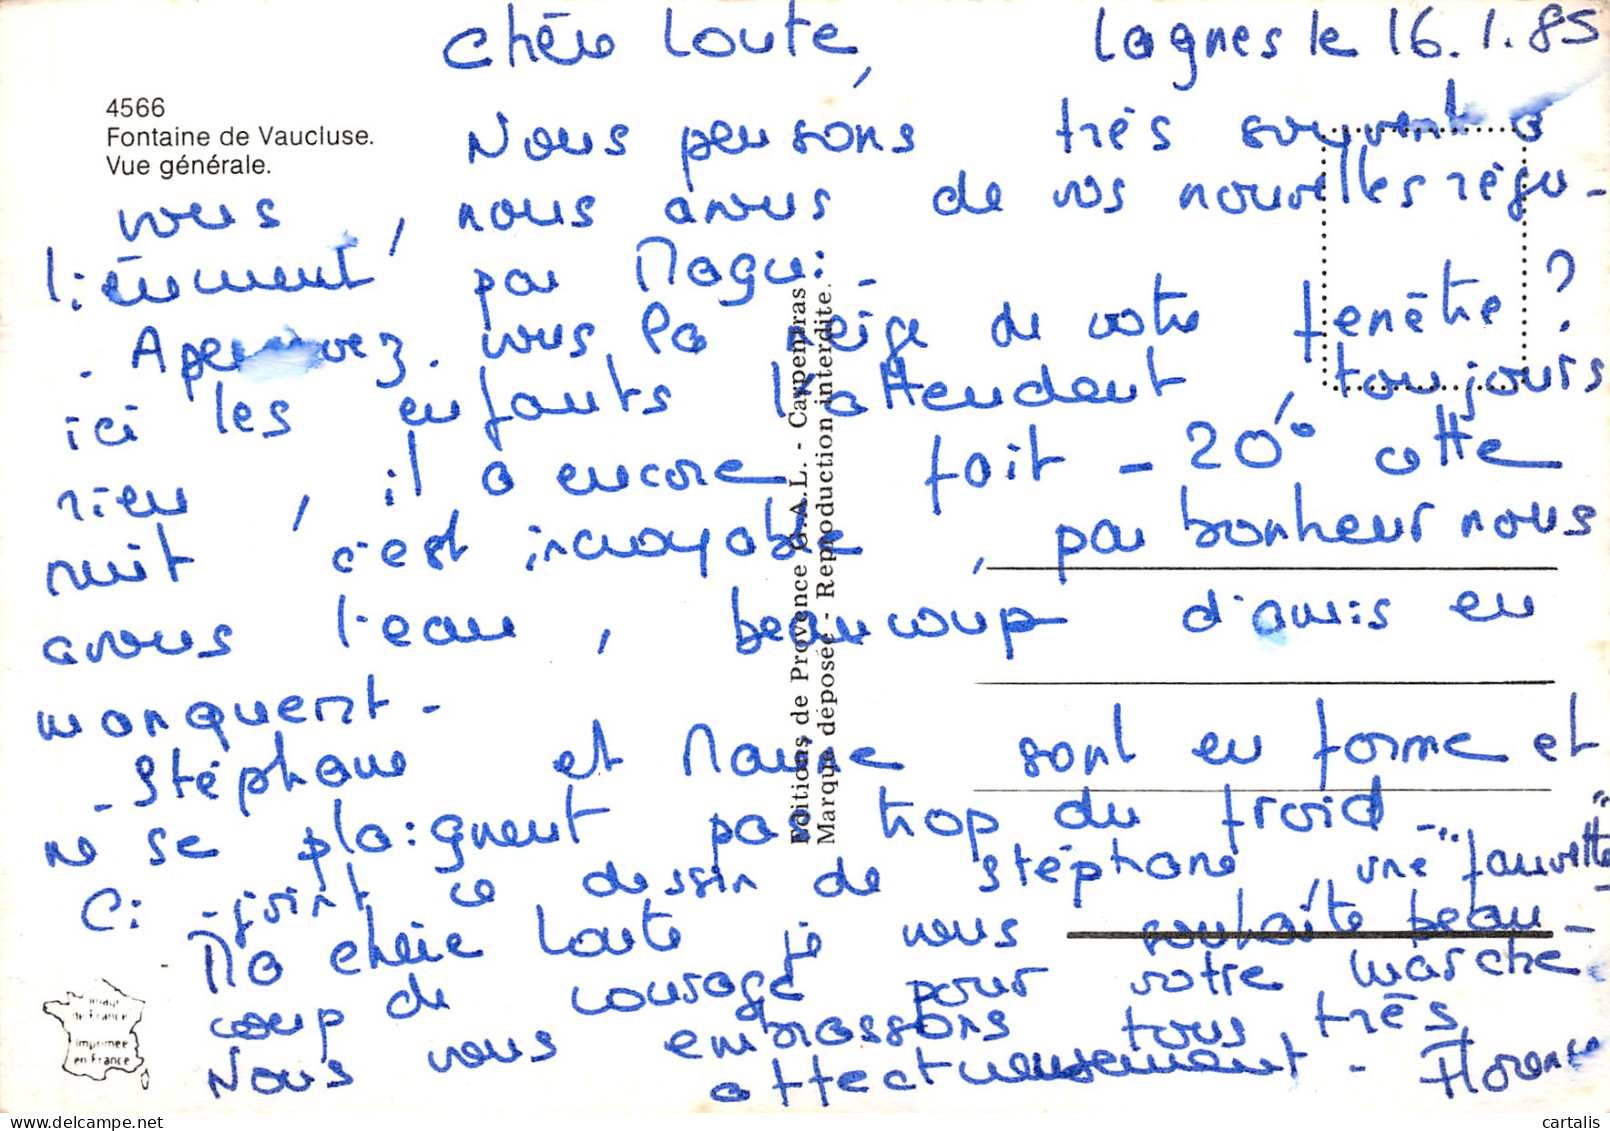 Chère Loute, Lagnes le 16.1.85
4566
Fontaine de Vaucluse.
Vue générale.
Nous pensons très souvent à
vous, nous avons de vos nouvelles régu-
lièrement par Magui.
- Apercevez-vous la neige de votre fenêtre ?
ici les enfants l'attendent, toujours
rien, il a encore fait - 20° cette
nuit c'est incroyable, par bonheur nous
avons l'eau, beaucoup d'amis en
manquent -
- Stéphane et Marine sont en forme et
ne se plaignent pas trop du froid -
Ci-joint ce dessin de Stéphane, une "fauvette"
Ma chère Loute je vous souhaite beau-
coup de courage pour votre marche
Nous vous embrassons tous très
affectueusement - Florence
Editions de Provence G.A.L. - Carpentras
Marque déposée - Reproduction interdite.
de France
Imprimée
en France
cartalis
www.delcampe.net